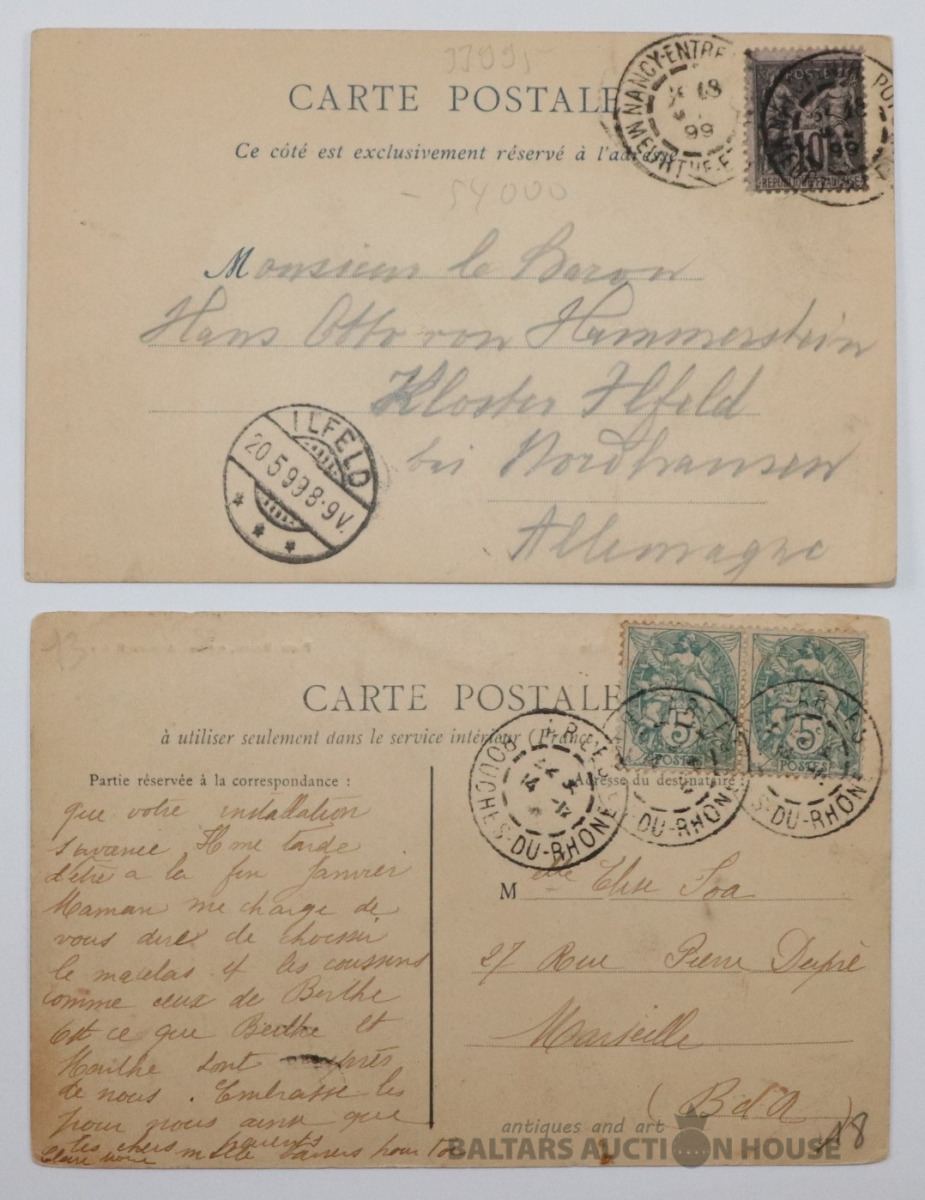 CARTE POSTALE
Ce côté est exclusivement réservé à l'adresse
- 54000
NANCY-ENTRE
18
99
MEURTHE-E
POSTE
10
REPUBLIQUE FRANÇAISE
Monsieur le Baron
Hans Otto von Hammerstein
Kloster Ilfeld
bei Nordhausen
Allemagne
ILFELD
20.5.99 8-9V.
13
CARTE POSTALE
à utiliser seulement dans le service intérieur (France
Partie réservée à la correspondance :
Adresse du destinataire :
ARLES
BOUCHES-DU-RHONE
5c
POSTES
ARLES
S-DU-RHÔNE
5c
POSTES
que votre installation
s'avance. Il me tarde
d'être a la fin Janvier
Maman me charge de
vous dire de choisir
le matelas & les coussins
comme ceux de Berthe
Est ce que Berthe et
Marthe sont près
de nous. Embrasse les
pour nous ainsi que
tes chers parents
mille baisers pour toi
Melle Elise
27 Rue Pierre Dupré
Marseille
(B d R)
18
antiques and art
BALTARS AUCTION HOUSE